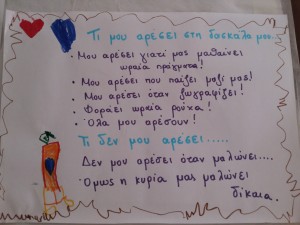 Τι μου αρέσει στη δασκάλα μου...
• Μου αρέσει γιατί μας μαθαίνει
ωραία πράγματα!
• Μου αρέσει που παίζει μαζί μας!
• Μου αρέσει όταν ζωγραφίζει!
• Φοράει ωραία ρούχα!
• Όλα μου αρέσουν!
Τι δεν μου αρέσει.....
Δεν μου αρέσει όταν μαλώνει....
Όμως η κυρία μας μαλώνει
δίκαια.